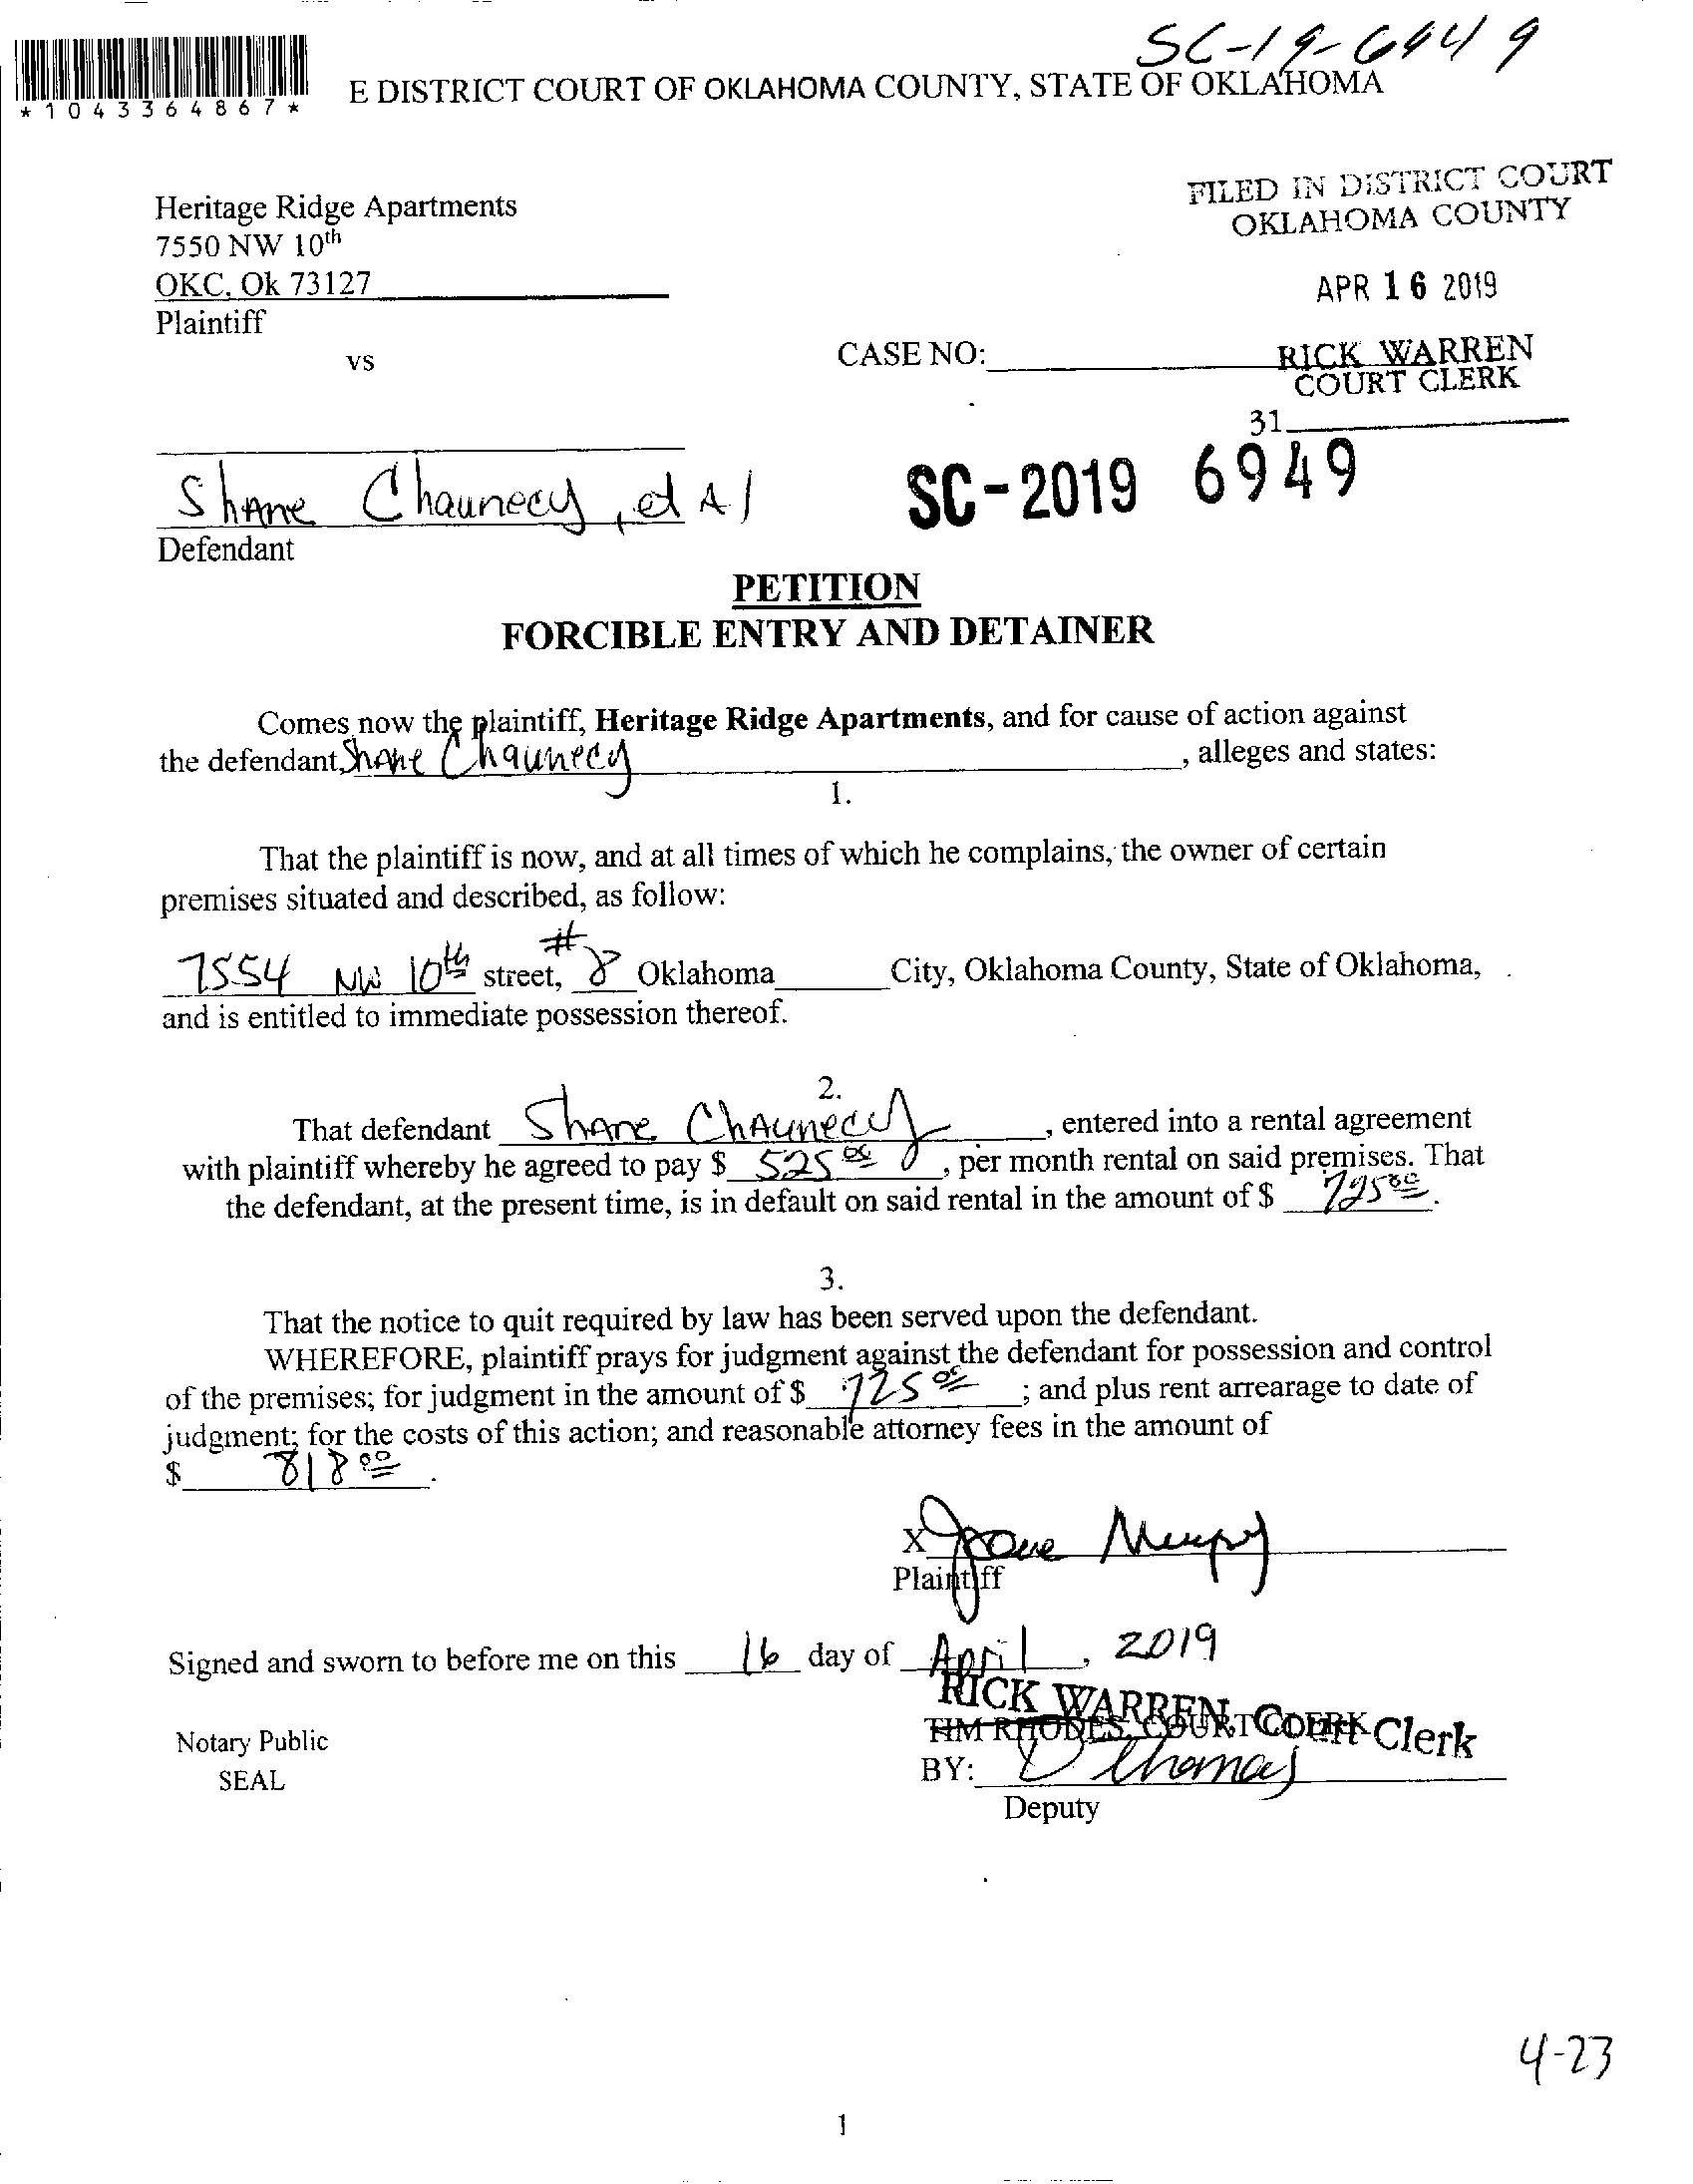 SC-19-6949
*1043364867*
E DISTRICT COURT OF OKLAHOMA COUNTY, STATE OF OKLAHOMA
FILED IN DISTRICT COURT
OKLAHOMA COUNTY
Heritage Ridge Apartments
7550 NW 10th
OKC, Ok 73127
Plaintiff
APR 16 2019
vs
CASE NO:
RICK WARREN
COURT CLERK
31
Shane Chaunecy, et Al
SC-2019 6949
Defendant
PETITION
FORCIBLE ENTRY AND DETAINER
Comes now the plaintiff, Heritage Ridge Apartments, and for cause of action against
the defendant, Shane Chaunecy, alleges and states:
1.
That the plaintiff is now, and at all times of which he complains, the owner of certain
premises situated and described, as follow:
7554 NW 10th street, #8 Oklahoma City, Oklahoma County, State of Oklahoma,
and is entitled to immediate possession thereof.
2.
That defendant Shane Chaunecy, entered into a rental agreement
with plaintiff whereby he agreed to pay $ 525 00, per month rental on said premises. That
the defendant, at the present time, is in default on said rental in the amount of $ 725 00.
3.
That the notice to quit required by law has been served upon the defendant.
WHEREFORE, plaintiff prays for judgment against the defendant for possession and control
of the premises; for judgment in the amount of $ 725 00; and plus rent arrearage to date of
judgment; for the costs of this action; and reasonable attorney fees in the amount of
$ 818 00.
X
Plaintiff
Signed and sworn to before me on this 16 day of April, 2019
RICK WARREN, Court Clerk
TIM RHODES, COURT CLERK
Notary Public
BY: D Thomas
SEAL
Deputy
4-23
1